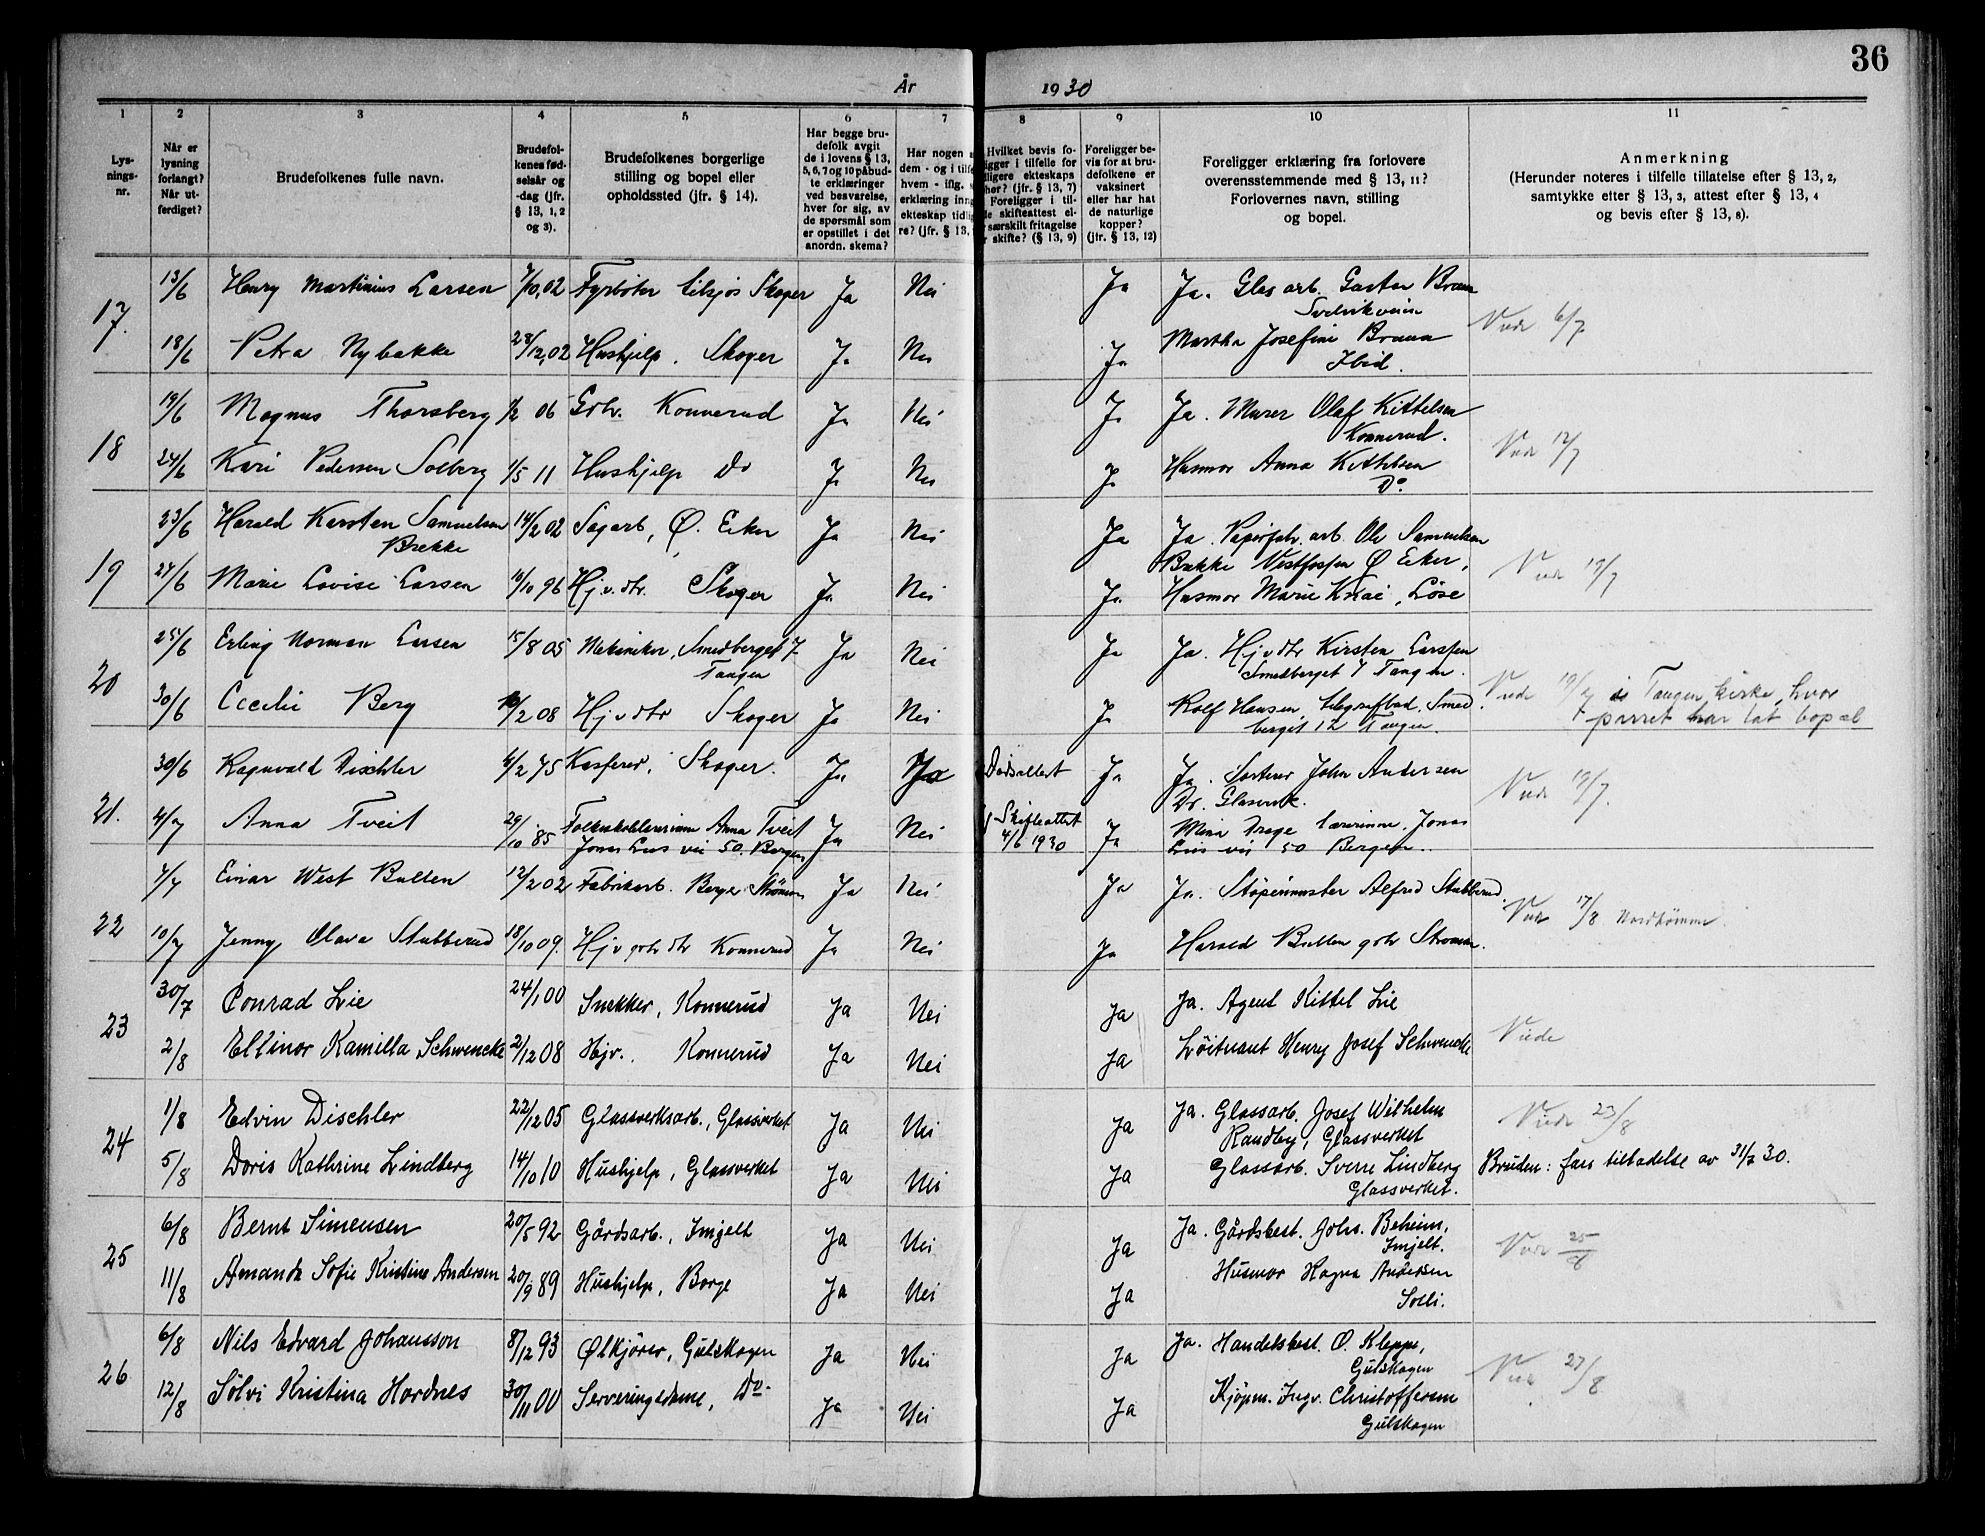 36
År 1930
1 2 3 4 5 6 7 8 9 10 11
Lysnings-nr.
Når er lysning forlangt? Når utferdiget?
Brudefolkenes fulle navn.
Brudefolkenes fødselsår og -dag (jfr. § 13, 1, 2 og 3).
Brudefolkenes borgerlige stilling og bopel eller opholdssted (jfr. § 14).
Har begge brudefolk avgit de i lovens § 13, 5, 6, 7 og 10 påbudte erklæringer ved besvarelse, hver for sig, av de spørsmål som er opstillet i det anordn. skema?
Har nogen
dem - og i tilfe
hvem - iflg.
erklæring inng
ekteskap tidlig
re? (jfr. § 13,
Hvilket bevis fo-
ligger i tilfelle for
ligere ekteskaps
hør? (jfr. § 13, 7)
Foreligger i til-
le skifteattest el-
særskilt fritagelse
skifte? (§ 13, 9)
Foreligger bevis for at brudefolkene er vaksinert eller har hat de naturlige kopper? (jfr. § 13, 12)
Foreligger erklæring fra forlovere overensstemmende med § 13, 11? Forlovernes navn, stilling og bopel.
Anmerkning
(Herunder noteres i tilfelle tillatelse efter § 13, 2, samtykke efter § 13, 3, attest efter § 13, 4 og bevis efter § 13, 8).
17. 13/6 Henry Martinius Larsen 7/10,02 Fyrbøter Skoger Ja Nei Ja Ja. Glasarb. Gustav Braun
18/6 Petra Nybakke 28/12,02 Hushjelp. Skoger Ja Nei Ja Martha Josefine Braun Ibid. 6/7
18 19/6 Magnus Thorsberg 1/2 06 Gbr. Konnerud Ja Nei Ja Ja. Murer Olaf Kittelsen Konnerud.
24/6 Kari Pedersen Solberg 1/5 11 Hushjelp Do Ja Nei Ja Husmor Anna Kittelsen Do. 12/7
19 23/6 Harald Karsten Samuelsen Brekke 14/2 02 Sagarb, Ø. Eiker Ja Nei Ja Ja. Papirfabr. arb. Ole Samuelsen Brekke Vestfossen Ø Eiker,
27/6 Marie Lovise Larsen 10/10 96 Hj.v.dtr. Skoger Ja Nei Ja Husmor Marie 19/7
20 25/6 Erling Norman Larsen 15/8 05 Mekaniker, Smedberget 7 Tangen Ja Nei Ja Ja. Hjvdtr Kirsten Larssen Smedberget 7 Tangen.
30/6 Cecilie Berg /2 08 Hjvdtr Skoger Ja Nei Ja Rolf Hansen telegrafbud. Smedberget 12 Tangen. Viede 19/7 i Tangen kirke, hvor parret har tat bopæl
21. 30/6 Ragnvald Dischler 4/2 75 Kasserer, Skoger. Ja Ja Dødsattest Ja Ja. Sorterer John Andersen Dr. Glasverk.
4/7 Anna Tveit 29/10 85 Folkeskolelærerinne Anna Tveit Jonas Lies vei 50. Bergen Ja Nei Skifteattest 4/6 1930 Ja Mina Drage lærerinne. Jonas Lies vei 50 Bergen. 19/7.
22 7/7 Einar West Bulten 12/2 02 Fabrikarb. Berger Strømm Ja Nei Ja Ja. Støperimester Alfred Stubberud.
10/7 Jenny Olava Stubberud 18/10 09. Hjv gbr dtr Konnerud Ja Nei Ja Harald Bulten gbr Strømm. 17/8
23 30/7 Conrad Lie 24/1 00 Snekker, Konnerud Ja Nei Ja Ja. Agent Kittel Lie
2/8 Ellinor Kamilla Schwencke 2/12 08 Hjv. Konnerud Ja Nei Ja Løitnant Henry Josef Schwencke Viede
24 1/8 Edvin Dischler 22/12 05 Glassverksarb., Glassverket Ja Nei Ja Ja. Glassarb. Josef Wilhelm Randby, Glassverket Viede 23/8
5/8 Doris Kathrine Lindberg 14/10 10 Hushjelp, Glassverket Ja Nei Ja Glassarb. Sverre Lindberg Glassverket. Bruden: fars tilladelse av 31/7 30.
25 6/8 Bernt Simensen 20/5 92 Gårdsarb., Imjelt Ja Nei Ja Ja. Gårdsbest. Johs. Beheim, Imjelt.
11/8 Amanda Sofie Kristine Andersen 20/9 89 Hushjelp, Borge Ja Nei Ja Husmor Hagna Andersen Solli. 25/8
26 6/8 Nils Edvard Johansson 8/12 93 Ølkjører, Gulskogen Ja Nei Ja Ja. Handelsbest. O. Kleppe, Gulskogen
12/8 Solvi Kristina Hordnes 30/11 00 Serveringsdame, Do. Ja Nei Ja Kjøpm. Ingv. Christoffersen Gulskogen 27/8